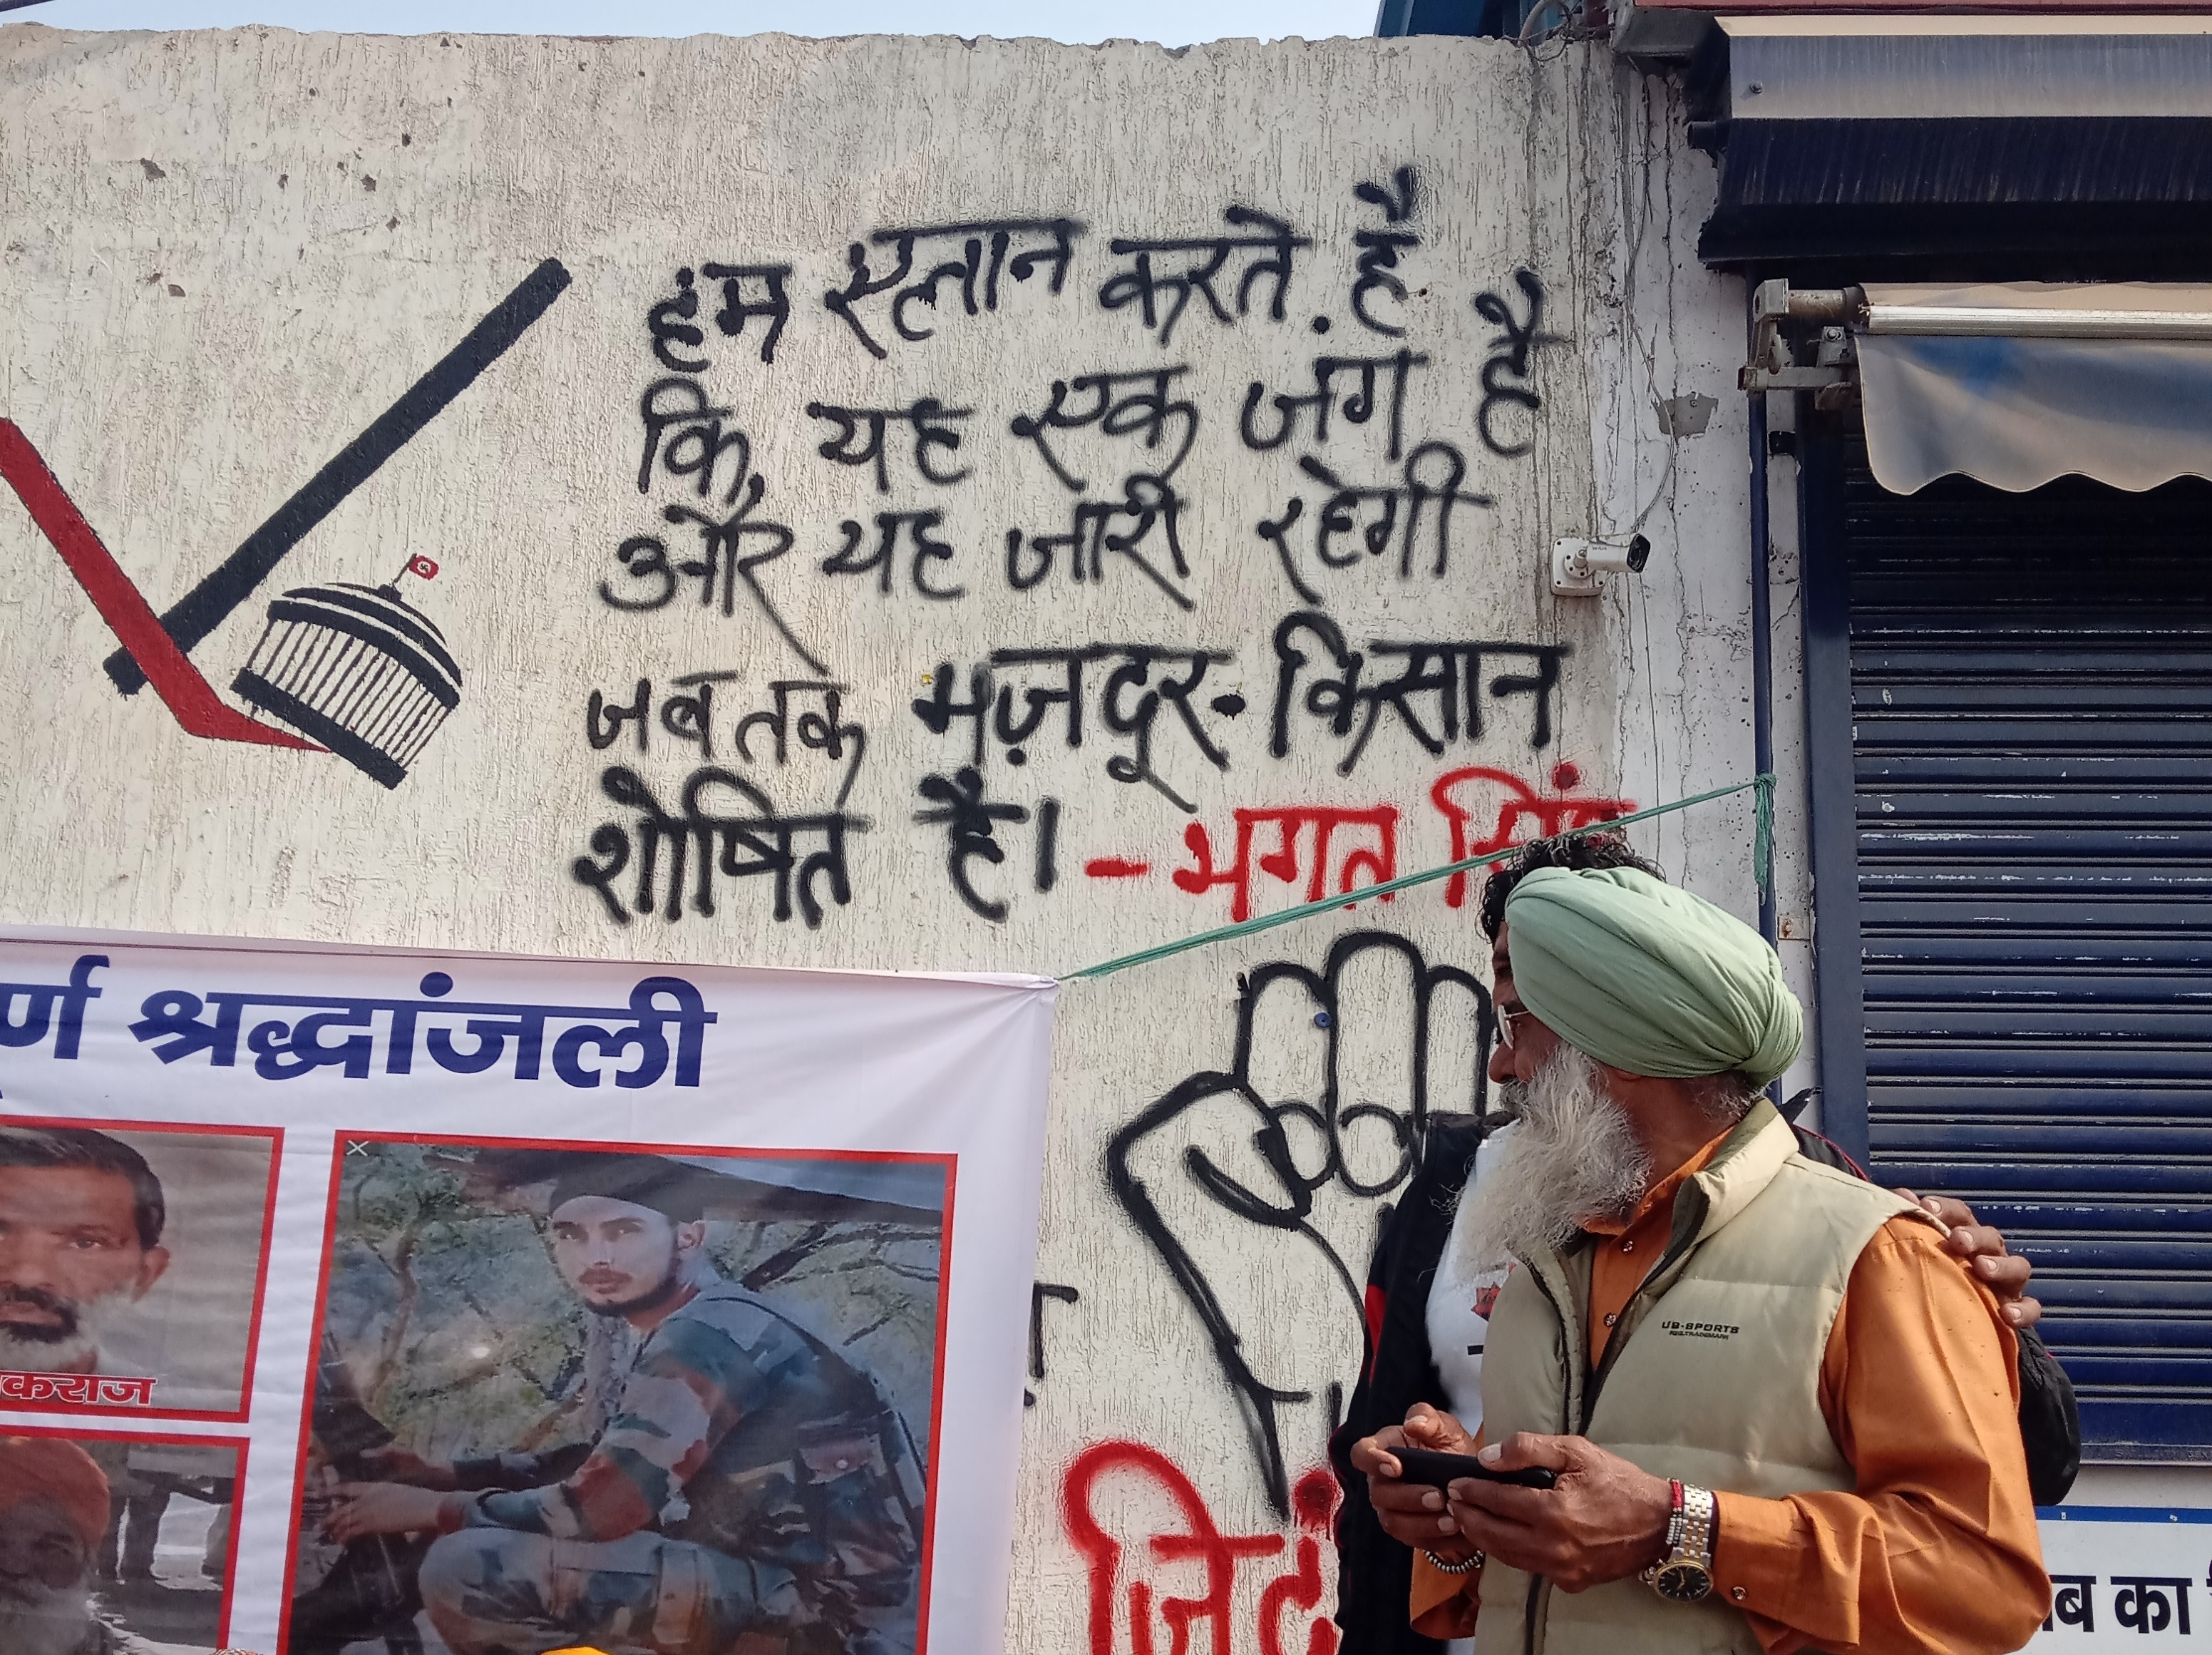 हम एलान करते है
कि यह एक जंग है
और यह जारी रहेगी
जब तक मज़दूर-किसान
शोषित है। - भगत सिंह
र्ण श्रद्धांजली
कराज
UB-SPORTS
जिदं
ब का